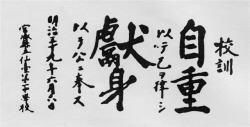 校訓
自重
以テ己ヲ律シ
献身
以テ公ニ奉ス
明治三十九年六月六日